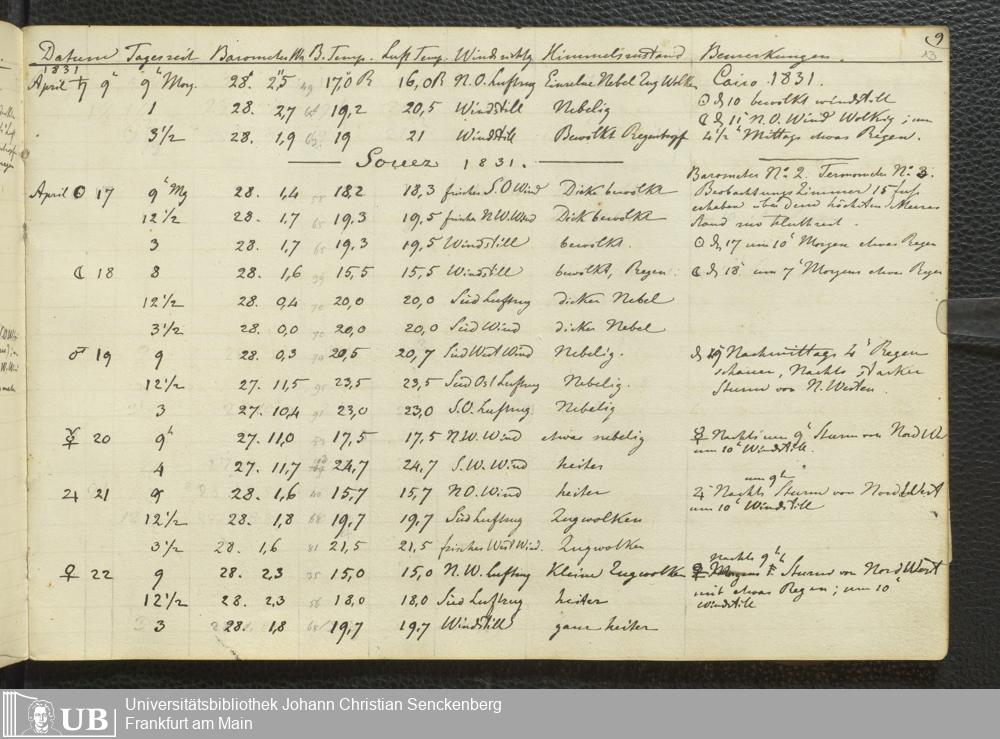 9
13
Datum Tageszeit Barometer B. Temp. Luft Temp. Windrichtg Himmelszustand Bemerkungen.
1831
April ♄ 9 9h Morg. 28" 2,5 49 17,0 R 16,0 R N.O. Luftzug Einzelne Nebel Zug Wolken Cairo 1831.
1 28. 2,7 19,2 20,5 Windstill Nebelig ☉ d 10 bewölkt windstill
☾ d 11 N.O. Wind Wolkig; um
3½ 28. 1,9 19 21 Windstill Bewölkt Regentropf 4½h Mittags etwas Regen.
Souez 1831.
Barometer No. 2. Termometer No. 3.
April ☉ 17 9h Mg 28. 1,4 18,2 18,3 frischer S.O Wind Dick bewölkt Beobachtungs Zimmer 15 fuss
erhaben über dem höchsten Meeres
12½ 28. 1,7 19,3 19,5 frischer N.W. Wind Dick bewölkt Stand zur Fluthzeit.
3 28. 1,7 19,3 19,5 Windstill bewölkt. ☉ d 17 um 10h Morgen etwas Regen
☾ 18 8 28. 1,6 15,5 15,5 Windstill bewölkt, Regen ☾ d 18 um 7h Morgens etwas Regen
12½ 28. 0,4 70 20,0 20,0 Süd Luftzug dicker Nebel
3½ 28. 0,0 70 20,0 20,0 Süd Wind dicker Nebel
♂ 19 9 28. 0,3 20,5 20,7 Süd West Wind Nebelig. d 19 Nachmittags 4h Regen
schauer, Nachts starker
12½ 27. 11,5 95 23,5 23,5 Süd Ost Luftzug Nebelig. Sturm von N. Westen
3 27. 10,4 91 23,0 23,0 S.O. Luftzug Nebelig
☿ 20 9h 27. 11,0 17,5 17,5 N.W. Wind etwas nebelig ☿ Nachts um 9h Sturm von Nord We
um 10h Windstill.
4 27. 11,7 24,7 24,7 S.W. Wind heiter
um 9h
♃ 21 9 28. 1,6 40 15,7 15,7 N.O. Wind heiter ♃ Nachts Sturm von Nord West
um 10h Windstill
12½ 28. 1,8 68 19,7 19,7 Süd Luftzug Zugwolken
3½ 28. 1,6 81 21,5 21,5 frischer West Wind. Zugwolken
Nachts 9h
♀ 22 9 28. 2,3 35 15,0 15,0 N.W. Luftzug Kleine Zugwolken ♀ Morgens Sturm von Nord West
mit etwas Regen; um 10h
12½ 28. 2,3 56 18,0 18,0 Süd Luftzug heiter Windstill
3 28. 1,8 19,7 19,7 Windstill ganz heiter
UB
Universitätsbibliothek Johann Christian Senckenberg
Frankfurt am Main